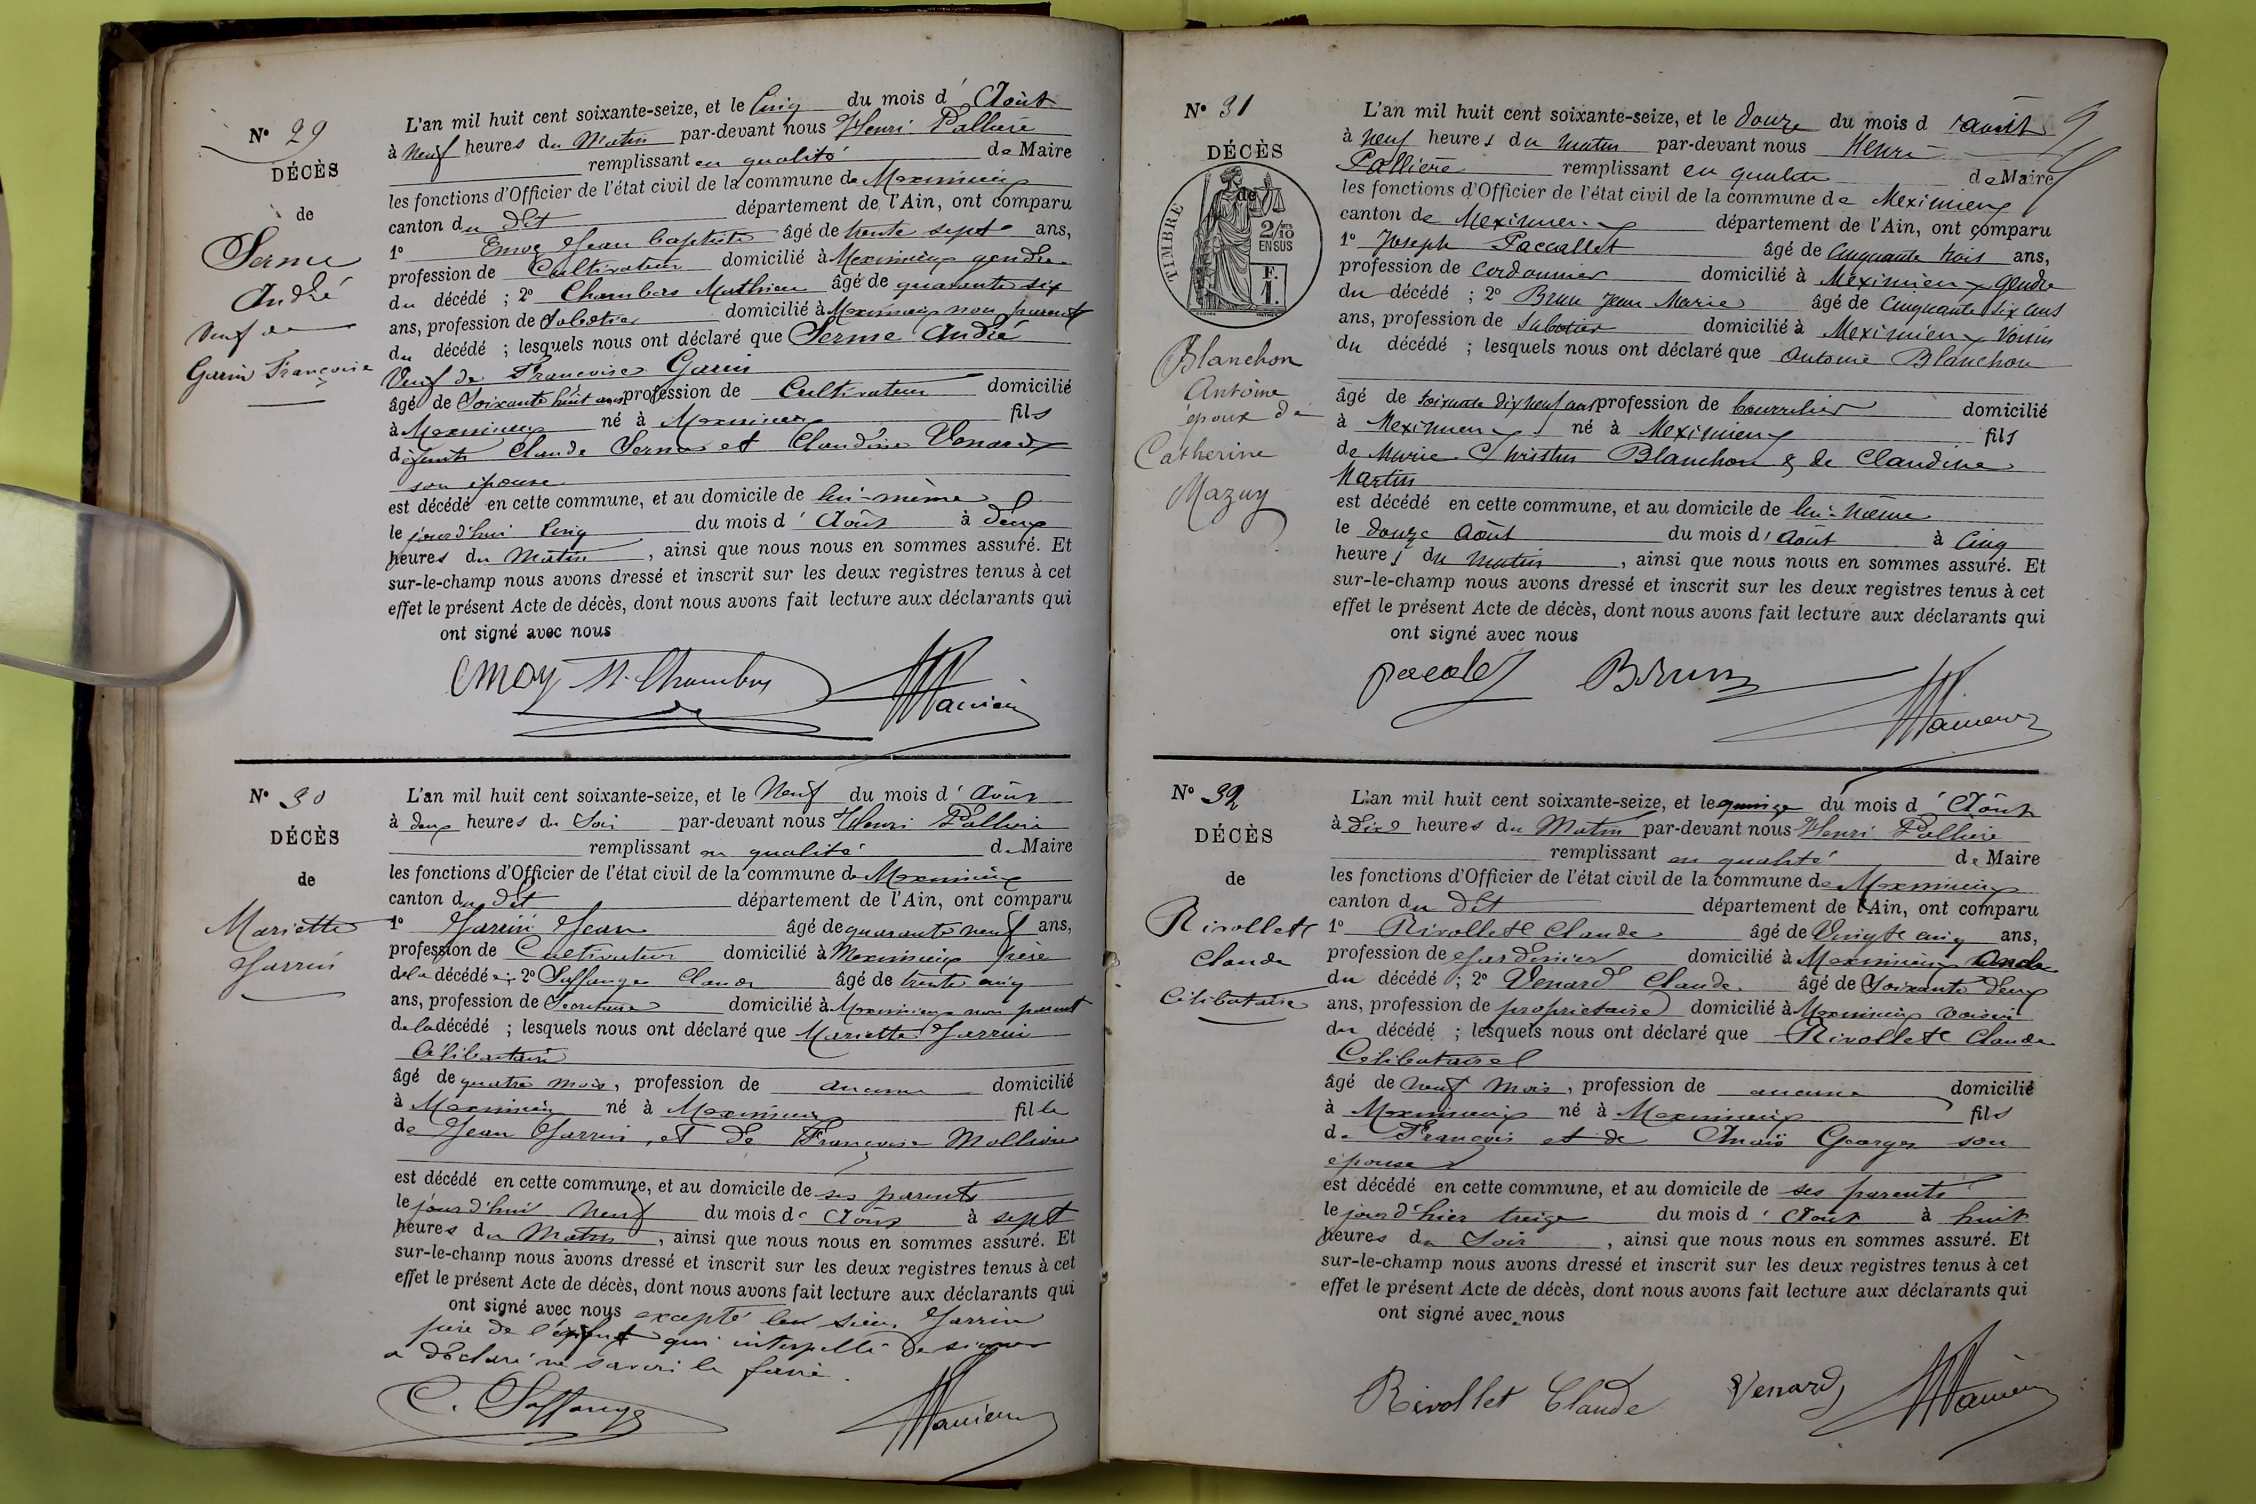 N° 29
DÉCÈS
de
Serme
André
Veuf de
Garin Françoise
L'an mil huit cent soixante-seize, et le Cinq du mois d' Août
à Neuf heures du Matin par-devant nous Henri Pallière
remplissant en qualité de Maire
les fonctions d'Officier de l'état civil de la commune de Meximieux
canton du dit département de l'Ain, ont comparu
1° Emoy Jean Baptiste âgé de trente sept ans,
profession de Cultivateur domicilié à Meximieux gendre
du décédé ; 2° Chambers Mathieu âgé de quarante six
ans, profession de Sabotier domicilié à Meximieux non parent
du décédé ; lesquels nous ont déclaré que Serme André
Veuf de Françoise Garin
âgé de Soixante huit ans profession de Cultivateur domicilié
à Meximieux né à Meximieux fils
de défunts Claude Serme et Claudine Venard
son épouse
est décédé en cette commune, et au domicile de lui-même
le jourd'hui Cinq du mois d' Août à deux
heures du Matin, ainsi que nous nous en sommes assuré. Et
sur-le-champ nous avons dressé et inscrit sur les deux registres tenus à cet
effet le présent Acte de décès, dont nous avons fait lecture aux déclarants qui
ont signé avec nous
Emoy M. Chambers
N° 30
DÉCÈS
de
Mariette
Jarrin
L'an mil huit cent soixante-seize, et le Neuf du mois d' Août
à deux heures du Soir par-devant nous Henri Pallière
remplissant en qualité de Maire
les fonctions d'Officier de l'état civil de la commune de Meximieux
canton du dit département de l'Ain, ont comparu
1° Jarrin Jean âgé de quarante neuf ans,
profession de Cultivateur domicilié à Meximieux père
de la décédée ; 2° Soffange Claude âgé de trente cinq
ans, profession de Secrétaire domicilié à Meximieux non parent
de la décédé ; lesquels nous ont déclaré que Mariette Jarrin
Célibataire
âgé de quatre mois, profession de aucune domicilié
à Meximieux né à Meximieux fille
de Jean Jarrin, et de Françoise Mollion
est décédé en cette commune, et au domicile de ses parents
le jourd'hui Neuf du mois de Août à sept
heures du Matin, ainsi que nous nous en sommes assuré. Et
sur-le-champ nous avons dressé et inscrit sur les deux registres tenus à cet
effet le présent Acte de décès, dont nous avons fait lecture aux déclarants qui
ont signé avec nous excepté le sieur Jarrin
père de l'enfant qui interpellé de signer
a déclaré ne savoir le faire.
C. Soffange
N° 31
DÉCÈS
de
TIMBRE
2/10
EN SUS
F.
1.
Blanchon
Antoine
époux de
Catherine
Mazuy
L'an mil huit cent soixante-seize, et le douze du mois d' août
à neuf heures du matin par-devant nous Henri
Pallière remplissant en qualité de Maire
les fonctions d'Officier de l'état civil de la commune de Meximieux
canton de Meximieux département de l'Ain, ont comparu
1° Joseph Paccallet âgé de Cinquante trois ans,
profession de cordonnier domicilié à Meximieux gendre
du décédé ; 2° Brun Jean Marie âgé de Cinquante six ans
ans, profession de sabotier domicilié à Meximieux Voisin
du décédé ; lesquels nous ont déclaré que Antoine Blanchon
âgé de soixante dix neuf ans profession de bourrelier domicilié
à Meximieux né à Meximieux fils
de Marie Christin Blanchon & de Claudine
Martin
est décédé en cette commune, et au domicile de lui-même
le douze Août du mois d' Août à Cinq
heures du matin, ainsi que nous nous en sommes assuré. Et
sur-le-champ nous avons dressé et inscrit sur les deux registres tenus à cet
effet le présent Acte de décès, dont nous avons fait lecture aux déclarants qui
ont signé avec nous
Brun
N° 32
DÉCÈS
de
Rivollet
Claude
Célibataire
L'an mil huit cent soixante-seize, et le quinze du mois d' Août
à dix heures du Matin par-devant nous Henri Pallière
remplissant en qualité de Maire
les fonctions d'Officier de l'état civil de la commune de Meximieux
canton du dit département de l'Ain, ont comparu
1° Rivollet Claude âgé de Vingt cinq ans,
profession de Jardinier domicilié à Meximieux oncle
du décédé ; 2° Venard Claude âgé de Soixante deux
ans, profession de propriétaire domicilié à Meximieux voisin
du décédé ; lesquels nous ont déclaré que Rivollet Claude
Célibataire
âgé de neuf mois, profession de aucune domicilié
à Meximieux né à Meximieux fils
de François et de Anaïs Georges son
épouse
est décédé en cette commune, et au domicile de ses parents
le jour d'hier treize du mois d' Août à huit
heures du Soir, ainsi que nous nous en sommes assuré. Et
sur-le-champ nous avons dressé et inscrit sur les deux registres tenus à cet
effet le présent Acte de décès, dont nous avons fait lecture aux déclarants qui
ont signé avec nous
Rivollet Claude Venard